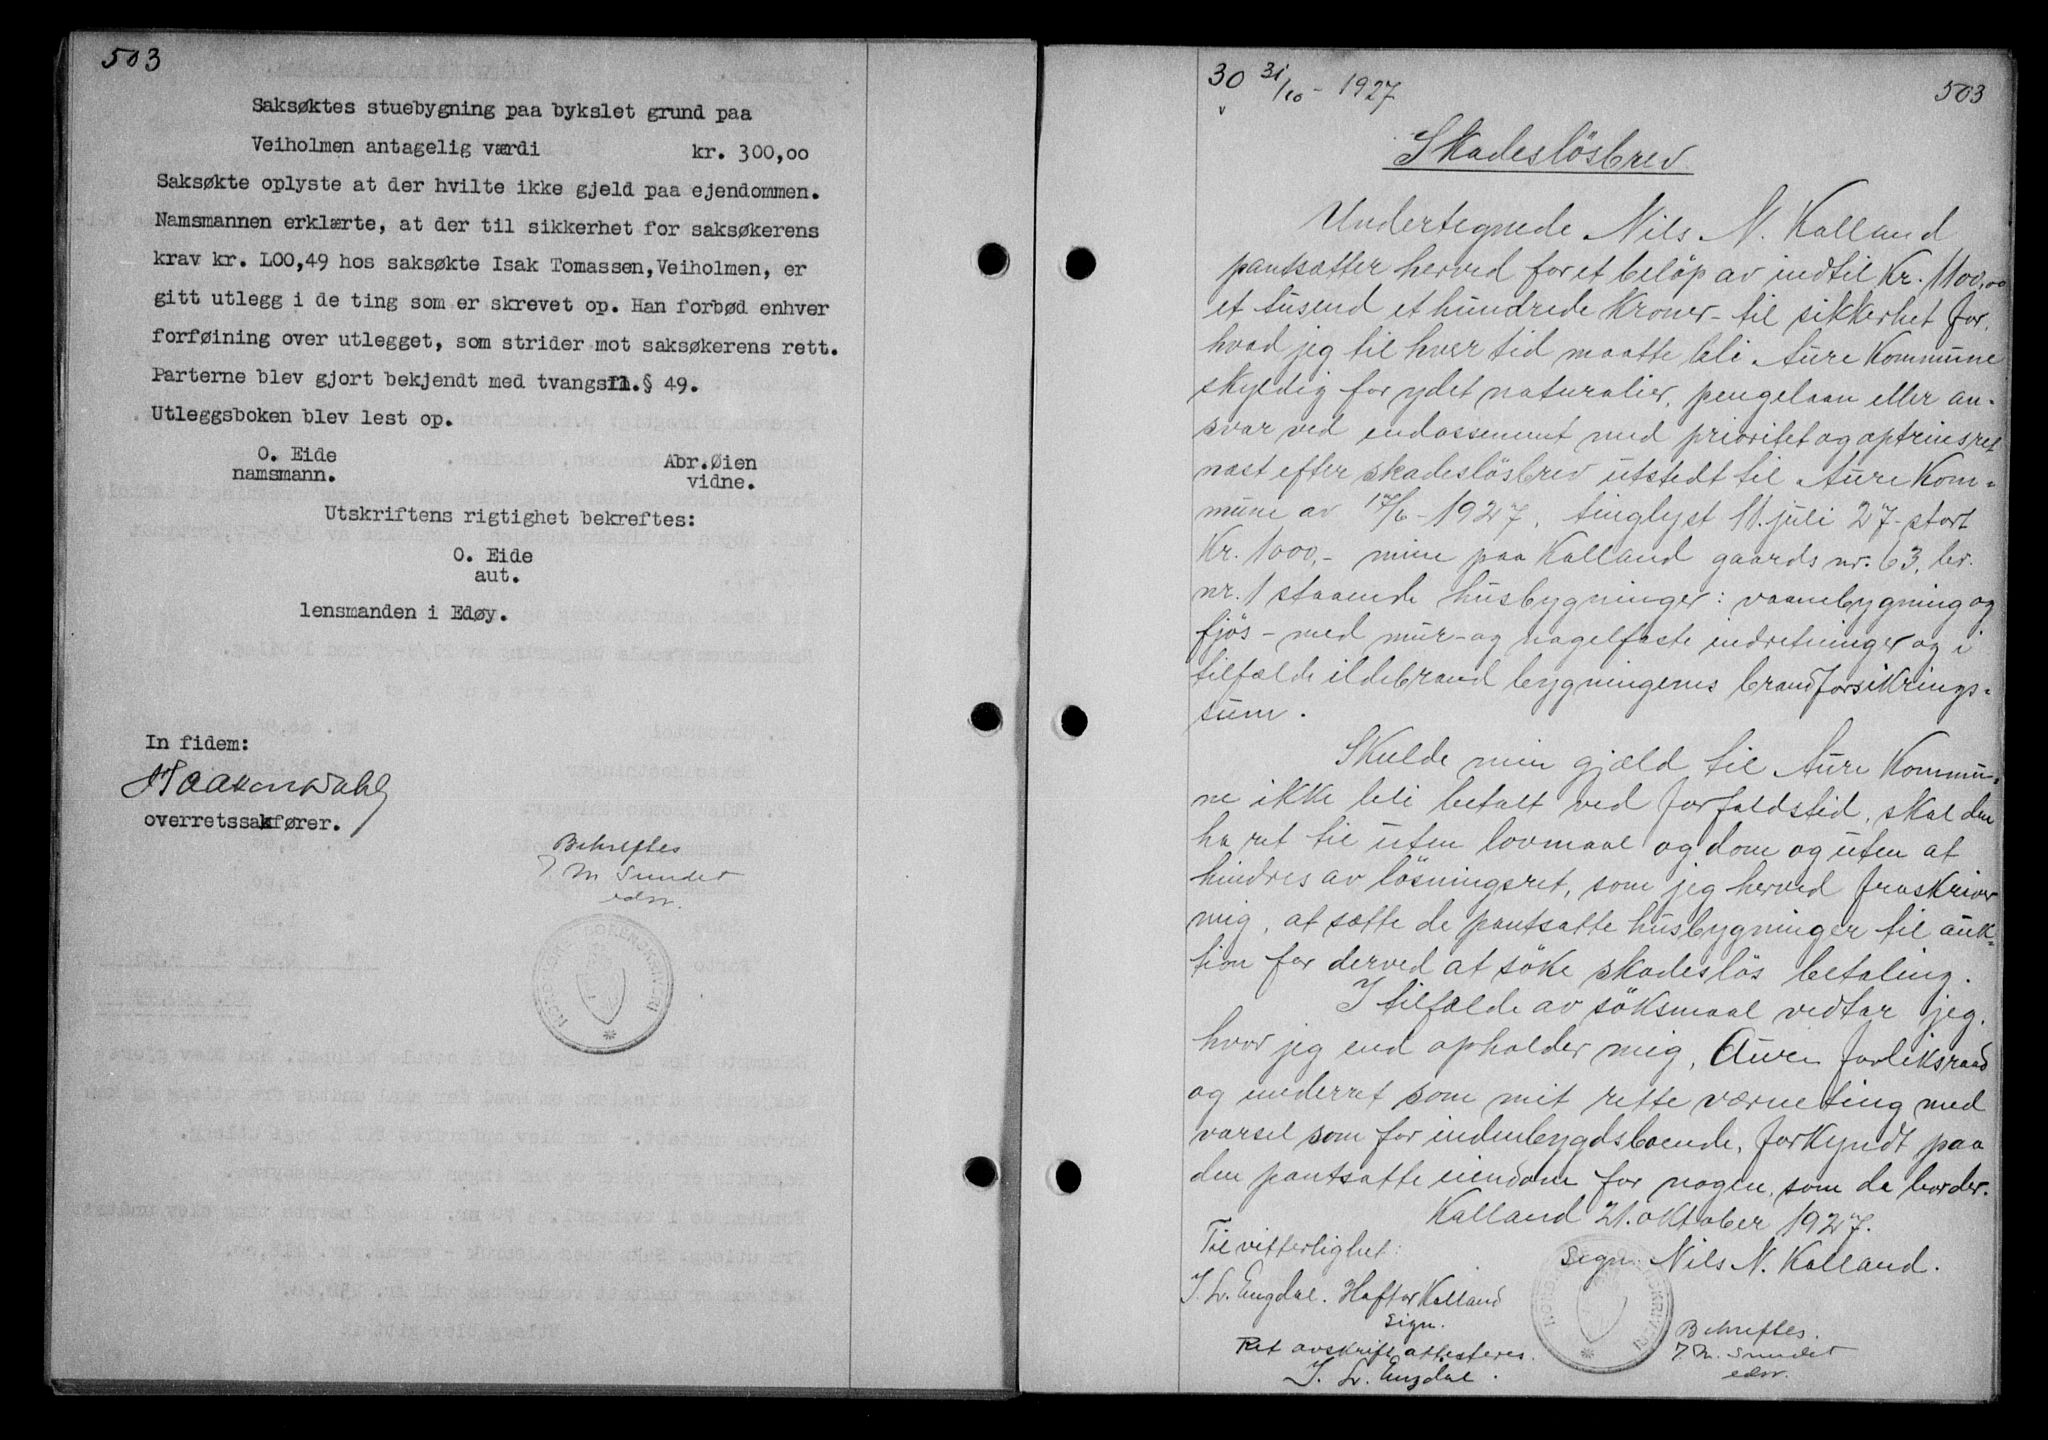 503
Saksøktes stuebygning paa bykslet grund paa
Veiholmen antagelig værdi kr. 300,00
Saksøkte oplyste at der hvilte ikke gjeld paa ejendommen.
Namsmannen erklærte, at der til sikkerhet for saksøkerens
krav kr. 100,49 hos saksøkte Isak Tomassen, Veiholmen, er
gitt utlegg i de ting som er skrevet op. Han forbød enhver
forføining over utlegget, som strider mot saksøkerens rett.
Parterne blev gjort bekjendt med tvangsfl. § 49.
Utleggsboken blev lest op.
O. Eide Abr. Øien
namsmann. vidne.
Utskriftens rigtighet bekreftes:
O. Eide
aut.
lensmanden i Edøy.
In fidem:
Haakon Dahl
overretssakfører.
Bekreftes
J. M. Sundet
edsv.
30 31/10 - 1927 503
Skadesløsbrev
Undertegnede Nils N. Kalland
pantsætter herved for et beløp av indtil Kr. 1100,00
et tusend et hundrede kroner - til sikkerhet for,
hvad jeg til hver tid maatte bli Aure Kommune
skyldig for ydet naturalier, pengelaan eller an-
svar ved endossement med prioritet og optrinsret
næst efter skadesløsbrev utstedt til Aure Kom-
mune av 17/6 - 1927, tinglyst 11. juli 27 - stort
Kr. 1000,- mine paa Kalland gaards nr. 63, br.
nr. 1 staaende husbygninger: vaanebygning og
fjøs - med mur- og nagelfaste indretninger og i
tilfælde ildebrand bygningenes brandforsikrings-
sum.
Skulde min gjæld til Aure Kommu-
ne ikke bli betalt ved forfaldstid, skal den
ha ret til uten lovmaal og dom og uten at
hindres av løsningsret, som jeg herved fraskriver
mig, at sætte de pantsatte husbygninger til auk-
tion for derved at søke skadesløs betaling.
I tilfælde av søksmaal vedtar jeg,
hvor jeg end opholder mig, Aure forliksraad
og underret som mit rette værneting med
varsel som for indenbygdsboende, forkyndt paa
den pantsatte eiendom for nogen, som da bor der.
Kalland 21. oktober 1927.
Til vitterlighet: Sign. Nils N. Kalland.
J. Lr. Engdal. Haftor Kalland
Sign.
Ret avskrift attesteres.
J. Lr. Engdal.
Bekreftes.
J. M. Sundet
edsv.